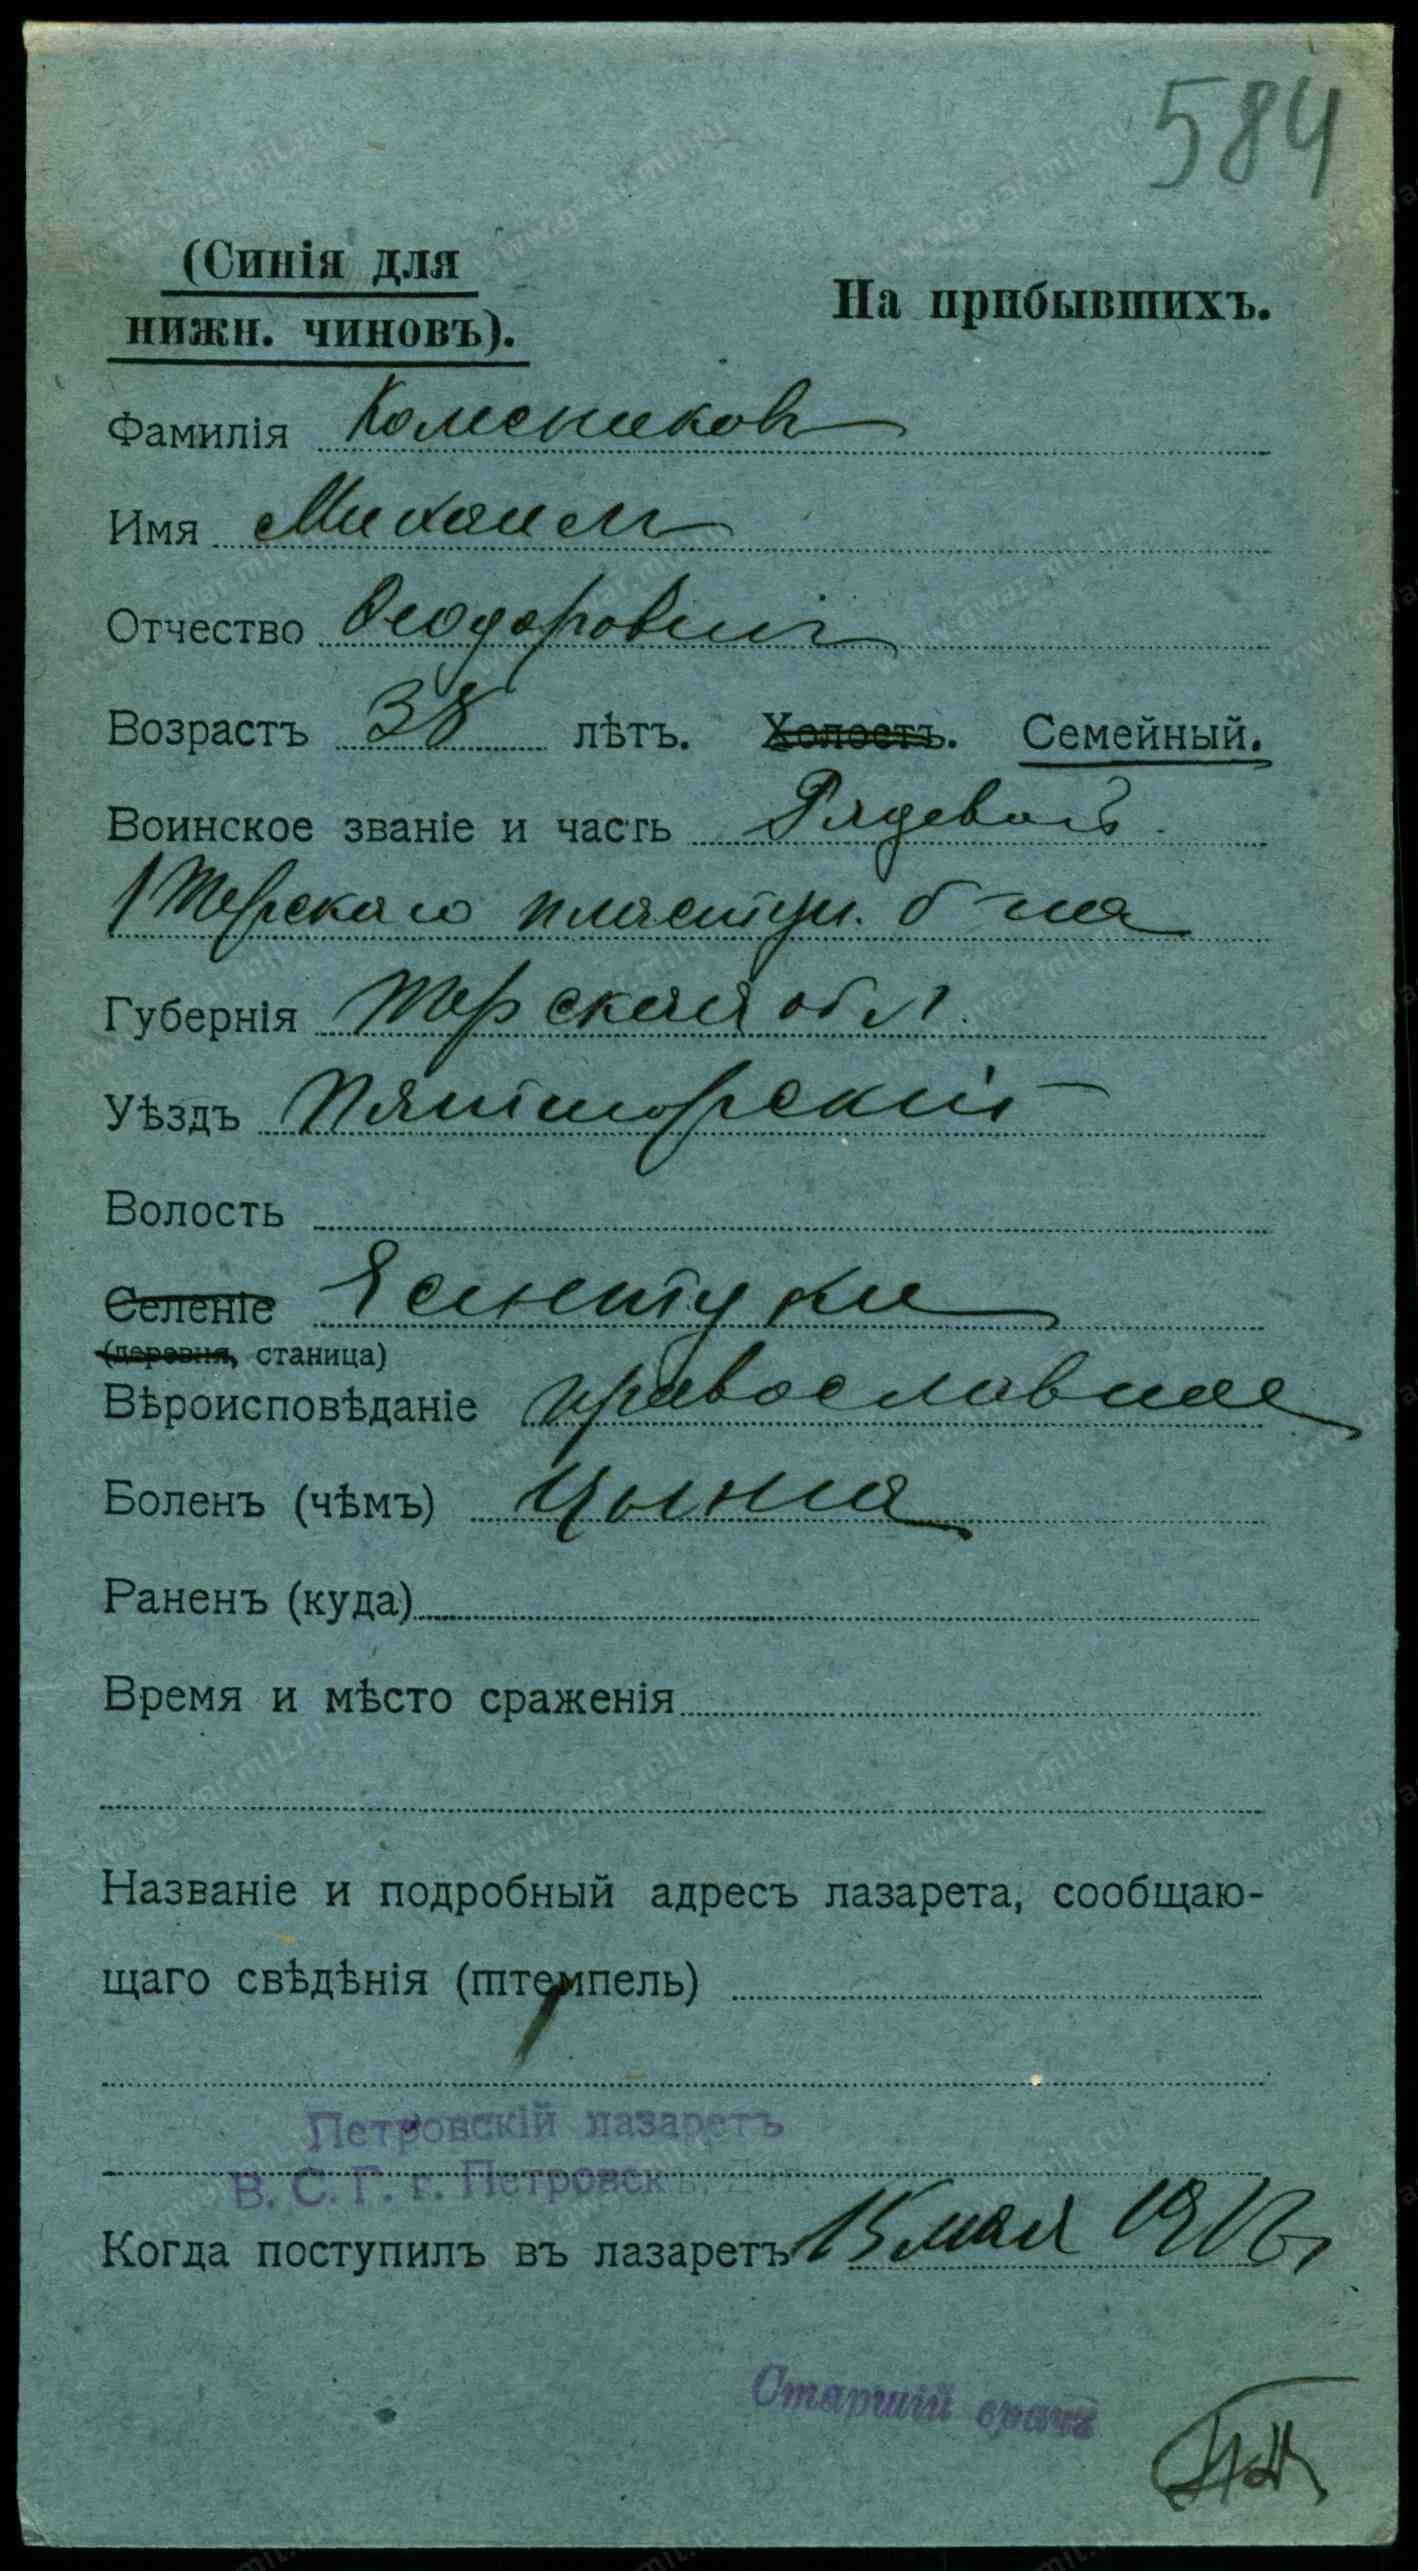 584
(Синія для
нижн. чиновъ).
На прибывшихъ.
Фамилія Колесниковъ
Имя Михаилъ
Отчество Ѳеодоровичъ
Возрастъ 38 лѣтъ. Холостъ. Семейный.
Воинское званіе и часть Рядовой
1 Терскаго пластун. б-на
Губернія Терская обл.
Уѣздъ Пятигорскій
Волость
Селеніе Ессентуки
(деревня, станица)
Вѣроисповѣданіе православное
Боленъ (чѣмъ) Цынга
Раненъ (куда)
Время и мѣсто сраженія
Названіе и подробный адресъ лазарета, сообщаю-
щаго свѣдѣнія (штемпель)
Петровскій лазаретъ
В. С. Г. г. Петровскъ
Когда поступилъ въ лазаретъ 15 мая 1916 г.
Старшій врачъ